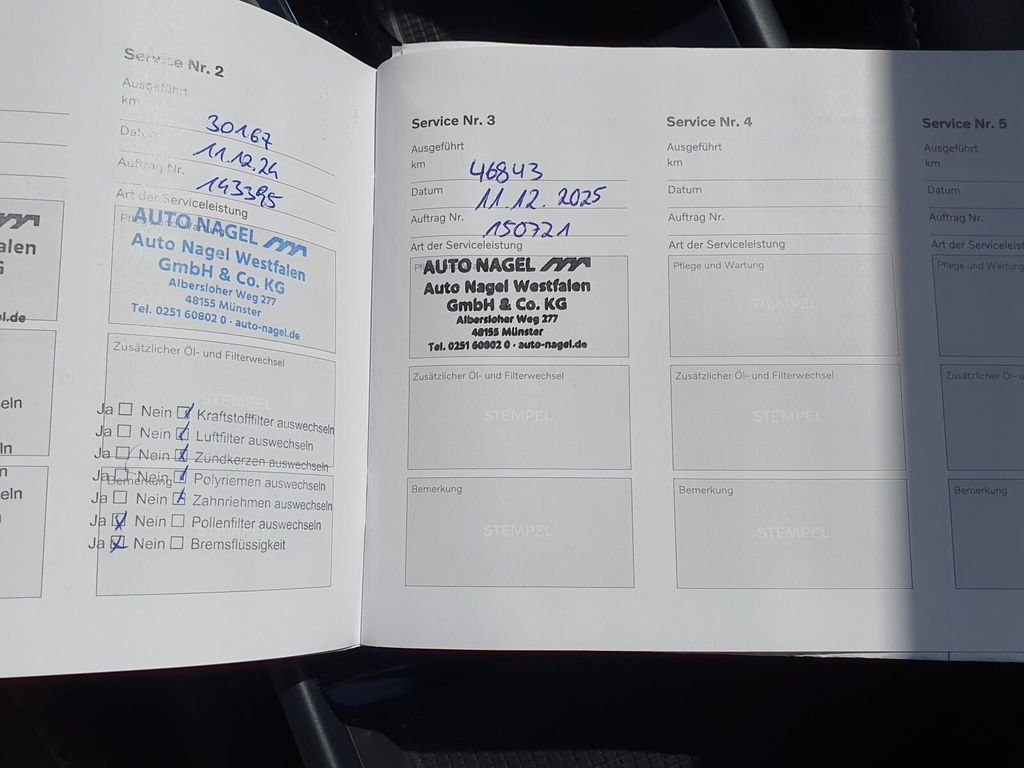 Service Nr. 2
Ausgeführt
km 30167
Datum 11.12.24
Auftrag Nr. 143395
Art der Serviceleistung
Pflege und Wartung
AUTO NAGEL
Auto Nagel Westfalen
GmbH & Co. KG
Albersloher Weg 277
48155 Münster
Tel. 0251 60802 0 · auto-nagel.de
Zusätzlicher Öl- und Filterwechsel
STEMPEL
Ja Nein Kraftstofffilter auswechseln
Ja Nein Luftfilter auswechseln
Ja Nein Zündkerzen auswechseln
Ja Nein Polyriemen auswechseln
Bemerkung
Ja Nein Zahnriehmen auswechseln
Ja Nein Pollenfilter auswechseln
STEMPEL
Ja Nein Bremsflüssigkeit
Service Nr. 3
Ausgeführt
km 46843
Datum 11.12.2025
Auftrag Nr. 150721
Art der Serviceleistung
AUTO NAGEL
Auto Nagel Westfalen
GmbH & Co. KG
Albersloher Weg 277
48155 Münster
Tel. 0251 60802 0 · auto-nagel.de
Zusätzlicher Öl- und Filterwechsel
STEMPEL
Bemerkung
STEMPEL
Service Nr. 4
Ausgeführt
km
Datum
Auftrag Nr.
Art der Serviceleistung
Pflege und Wartung
STEMPEL
Zusätzlicher Öl- und Filterwechsel
STEMPEL
Bemerkung
STEMPEL
Service Nr. 5
Ausgeführt
km
Datum
Auftrag Nr.
Art der Serviceleist
Pflege und Wartung
Zusätzlicher Öl- und
Bemerkung